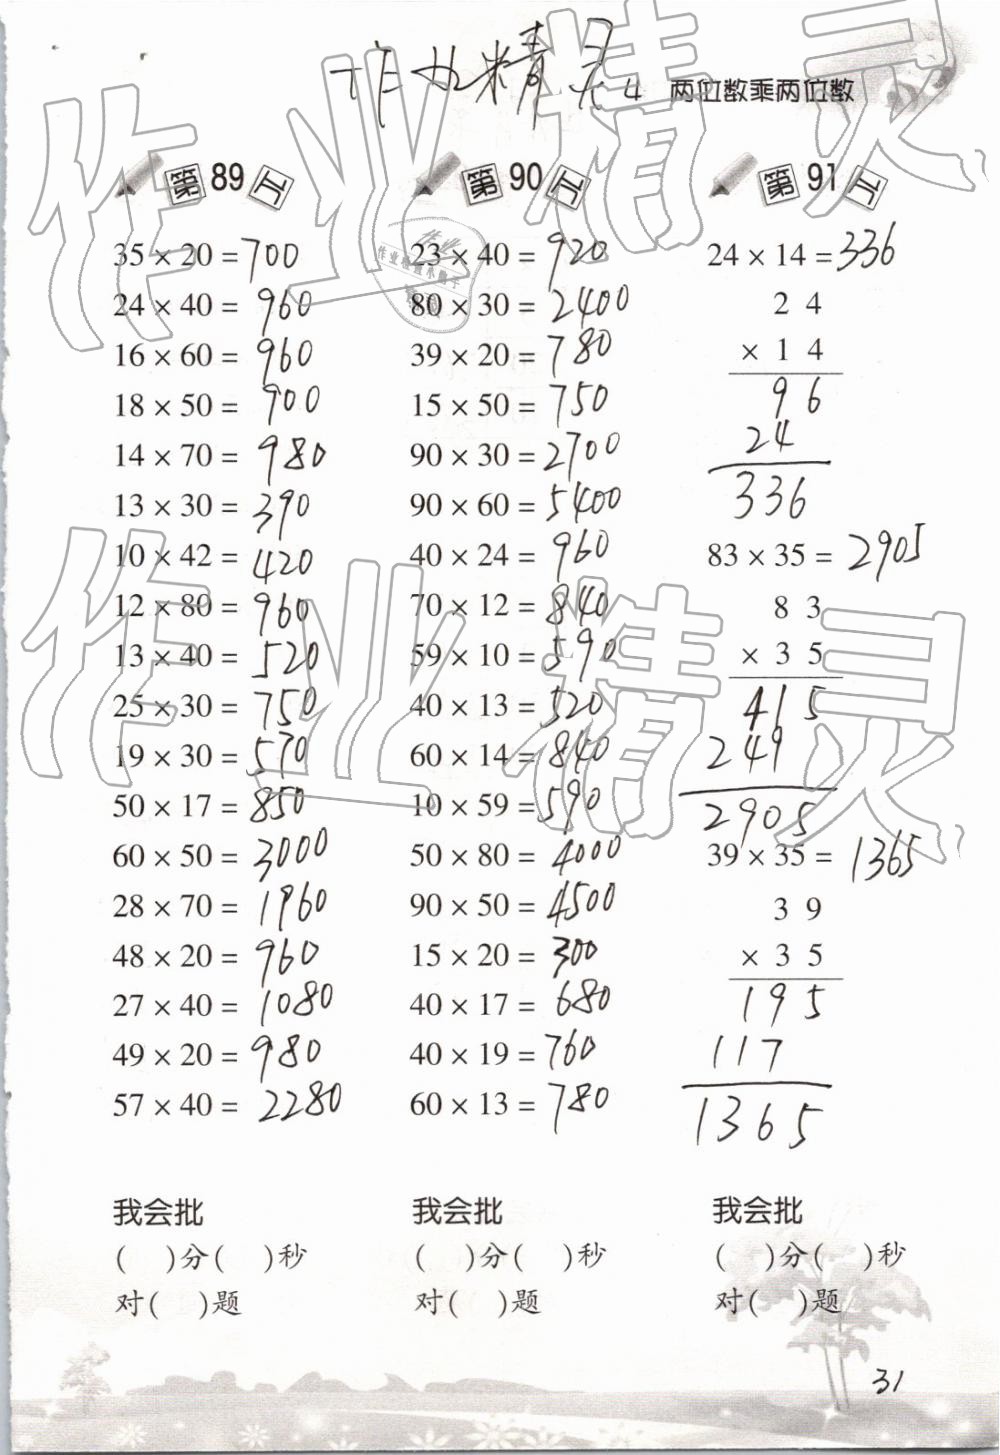 作业精灵
4 两位数乘两位数
第89工
35 × 20 = 700
24 × 40 = 960
16 × 60 = 960
18 × 50 = 900
14 × 70 = 980
13 × 30 = 390
10 × 42 = 420
12 × 80 = 960
13 × 40 = 520
25 × 30 = 750
19 × 30 = 570
50 × 17 = 850
60 × 50 = 3000
28 × 70 = 1960
48 × 20 = 960
27 × 40 = 1080
49 × 20 = 980
57 × 40 = 2280
我会批
( )分( )秒
对( )题
第90工
23 × 40 = 920
80 × 30 = 2400
39 × 20 = 780
15 × 50 = 750
90 × 30 = 2700
90 × 60 = 5400
40 × 24 = 960
70 × 12 = 840
59 × 10 = 590
40 × 13 = 520
60 × 14 = 840
10 × 59 = 590
50 × 80 = 4000
90 × 50 = 4500
15 × 20 = 300
40 × 17 = 680
40 × 19 = 760
60 × 13 = 780
我会批
( )分( )秒
对( )题
第91工
24 × 14 = 336
2 4
× 1 4
9 6
2 4
3 3 6
83 × 35 = 2905
8 3
× 3 5
4 1 5
2 4 9
2 9 0 5
39 × 35 = 1365
3 9
× 3 5
1 9 5
1 1 7
1 3 6 5
我会批
( )分( )秒
对( )题
31
作业精灵
作业精灵